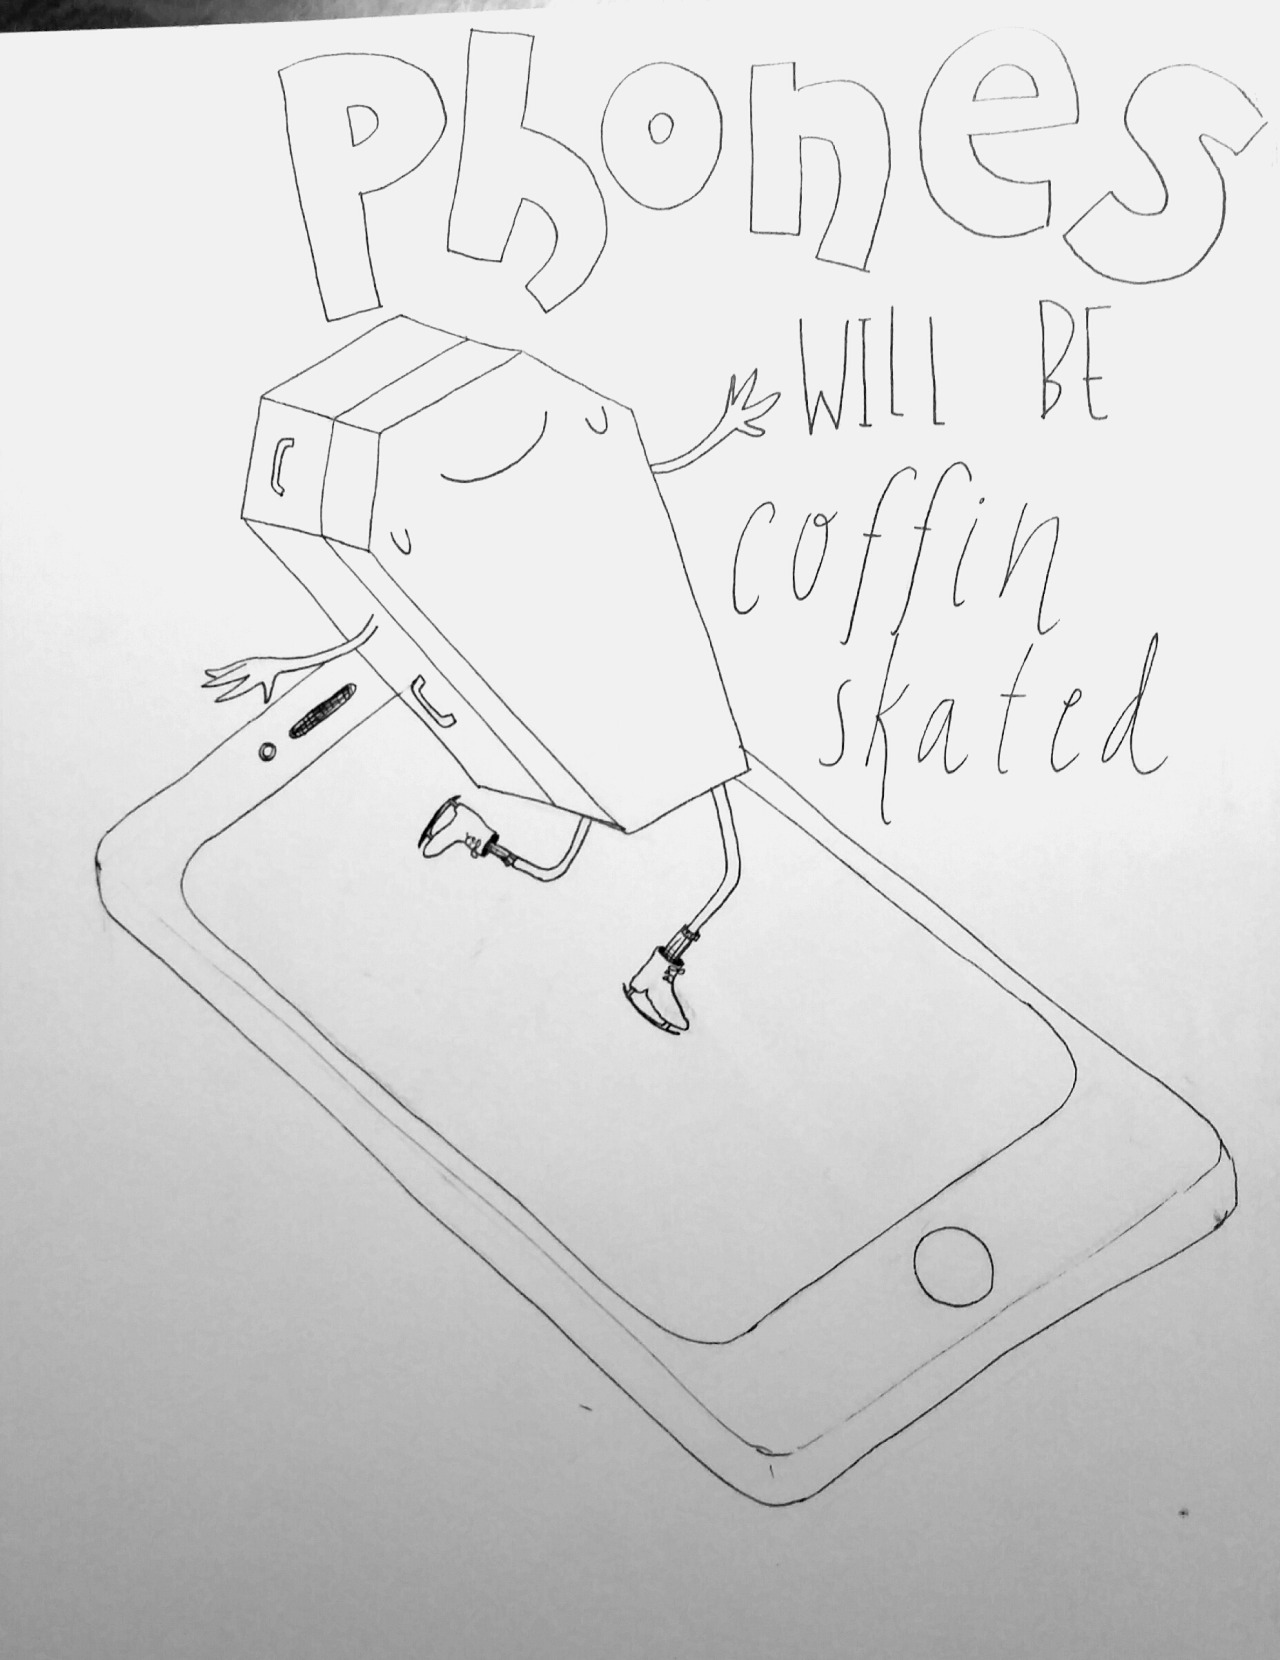 Phones
WILL BE
coffin
skated